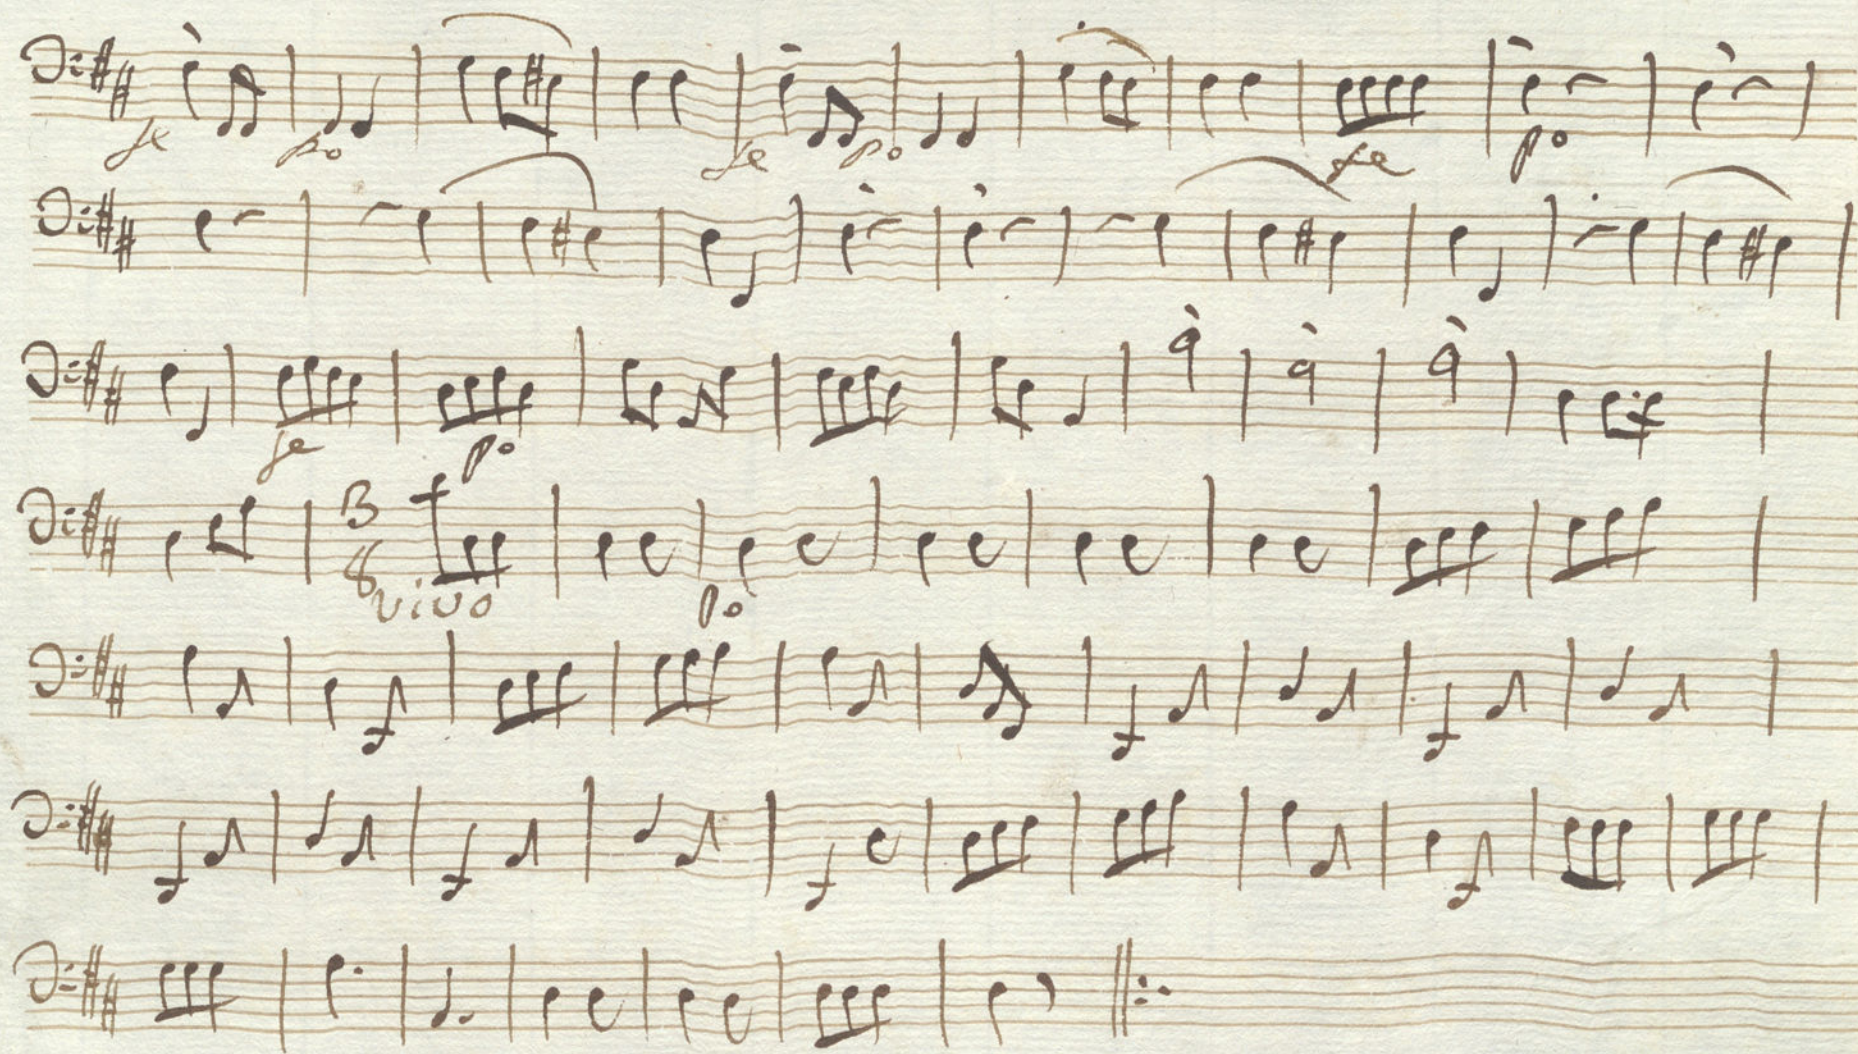 fe po fe po fe po
fe po
3
8
vivo po